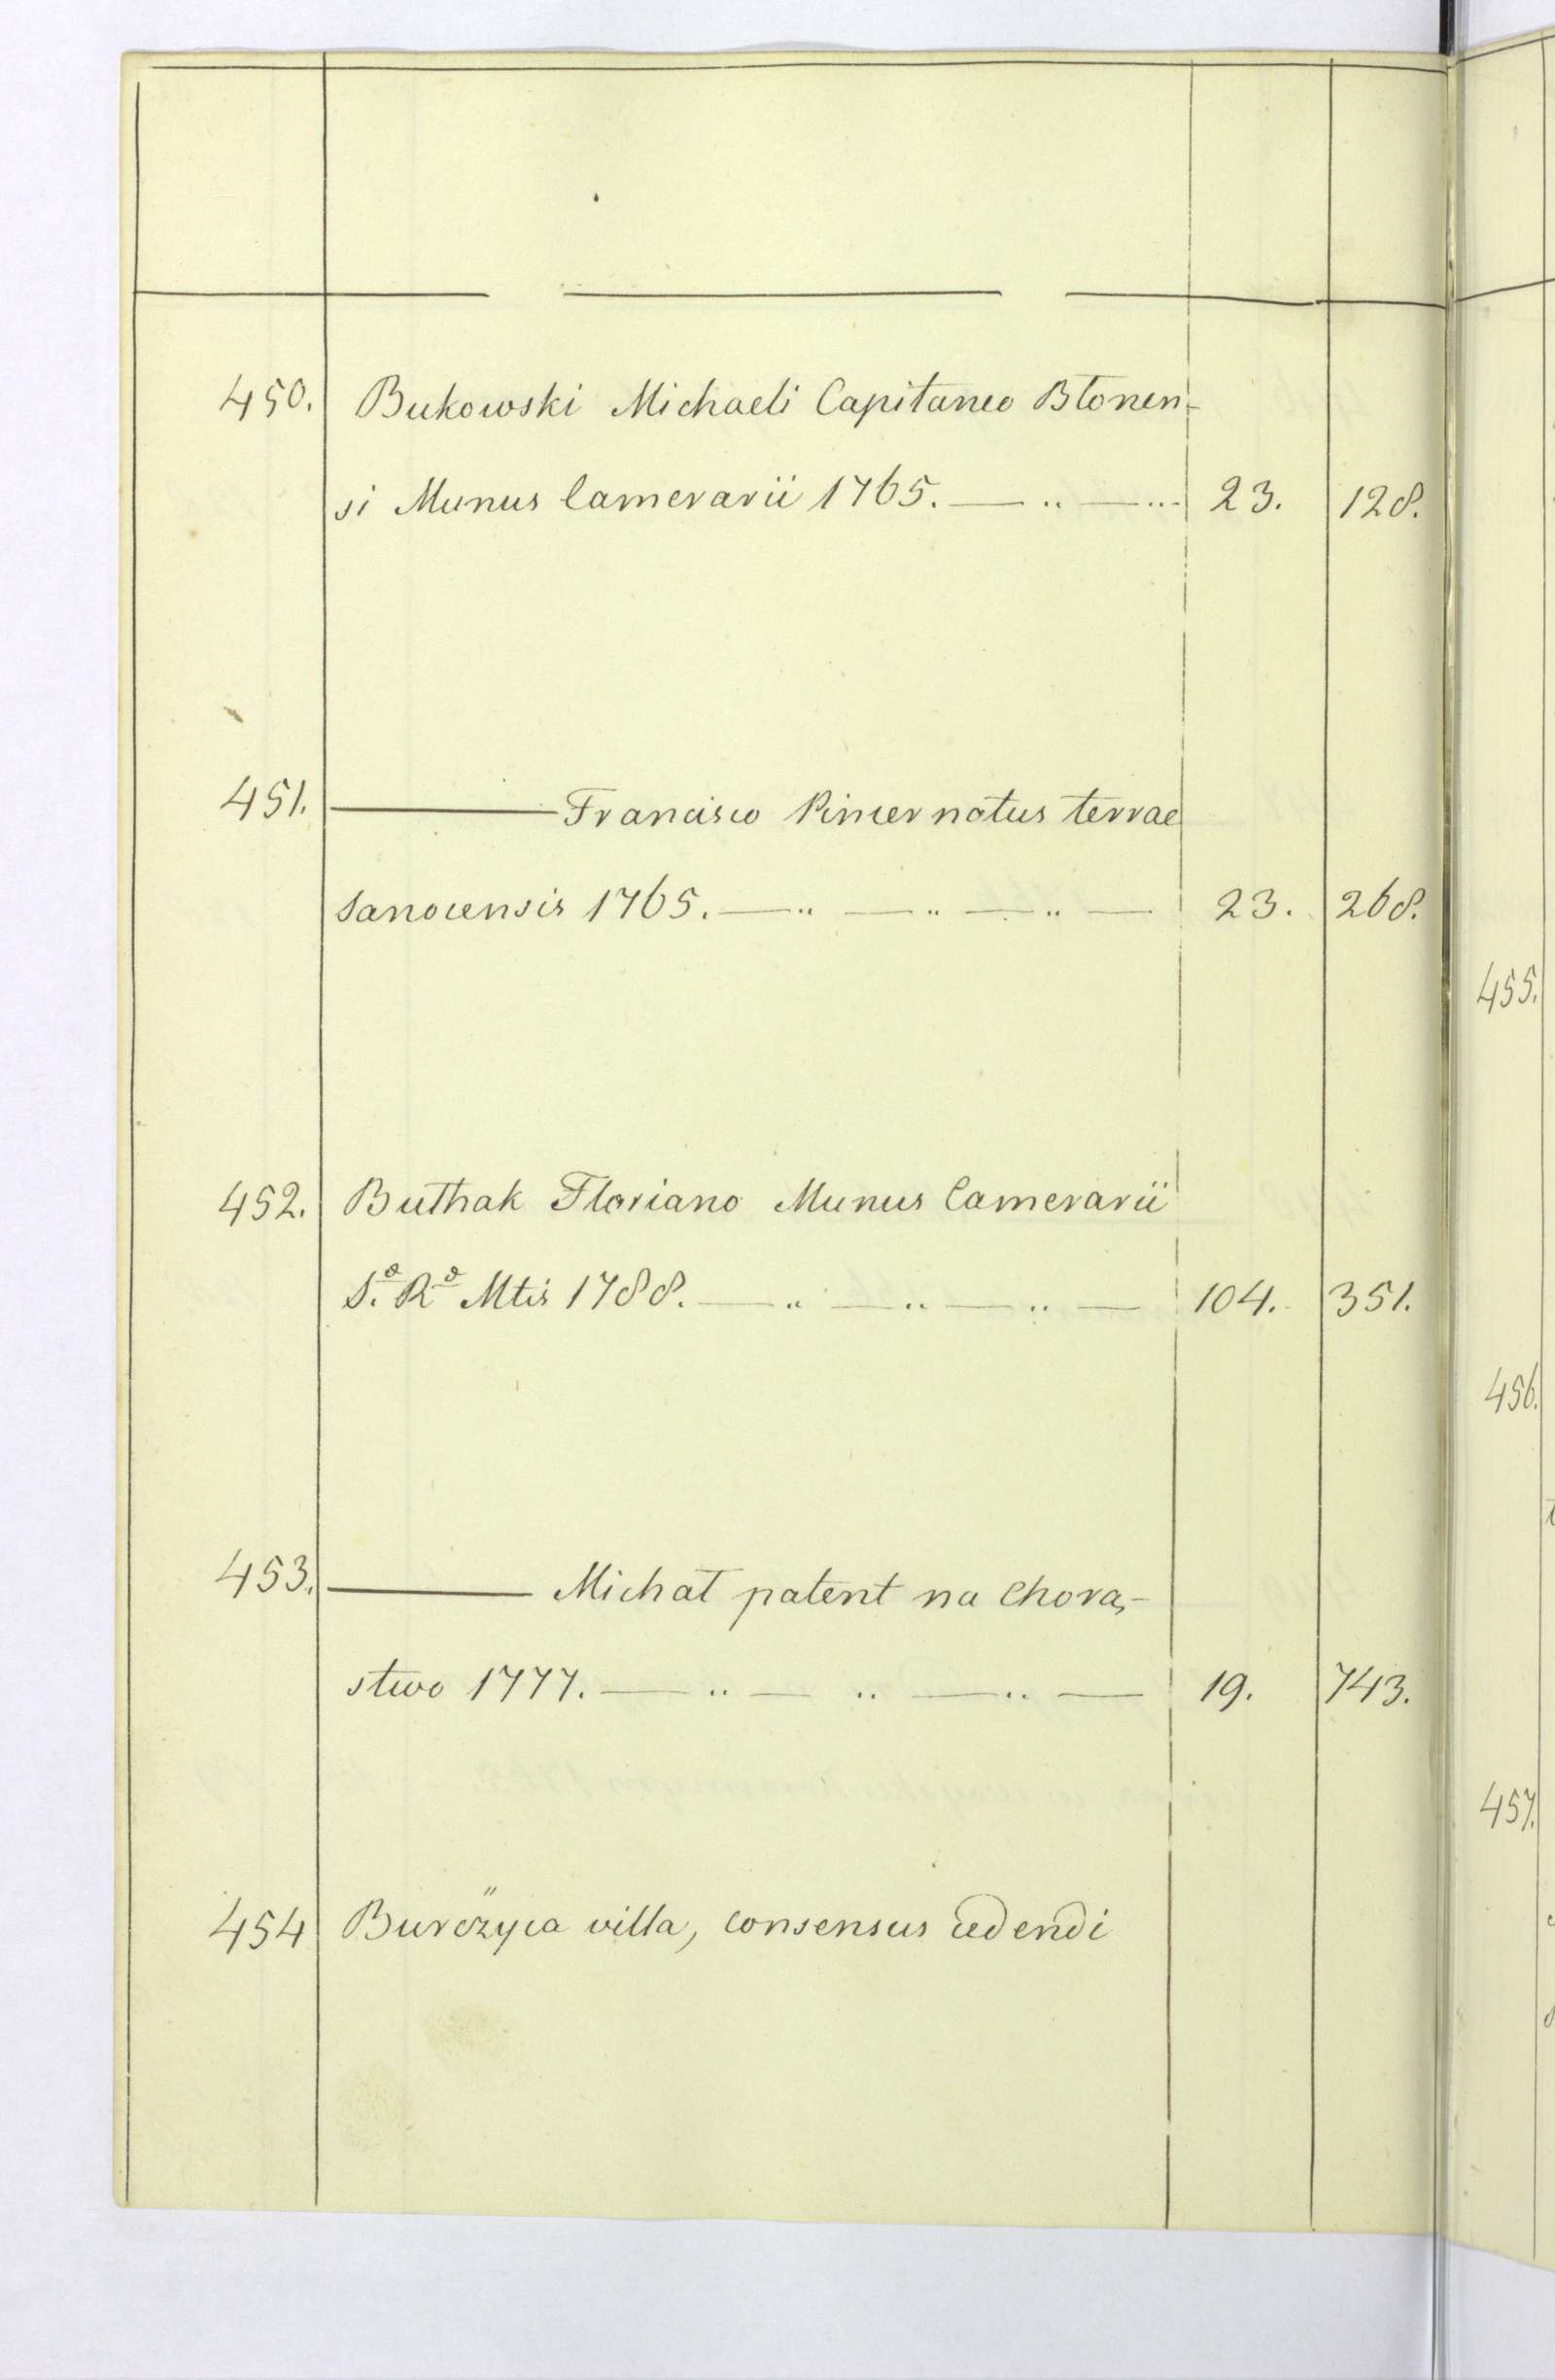 450. Bukowski Michaeli Capitaneo Błonen-
si Munus Camerarii 1765. — „ — „ 23. 128.
451. ——— Francisco Pincernatus terrae
Sanocensis 1765. — „ — „ — „ — 23. 268.
452. Buthak Floriano Munus Camerarii
S.ae Rae Mtis 1788. — „ — „ — „ — 104. 351.
453. ——— Michał patent na Chorą-
stwo 1777. — „ — „ — „ — 19. 743.
454 Burczyca villa, consensus cedendi
455.
456.
457.